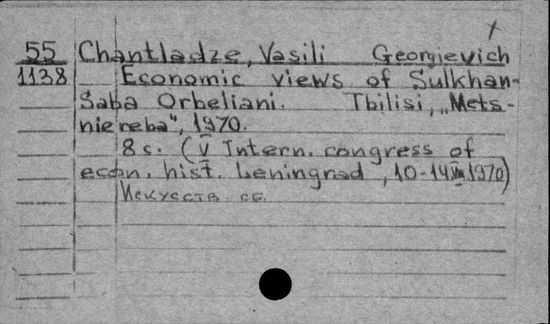 55 Chantladze, Vasili Georgievich
1138 Economic views of Sulkhan-
Saba Orbeliani. Tbilisi, „Mets-
niereba", 1970.
8 c. (V Intern. congress of
econ. hist. Leningrad, 10-14 VIII 1970)
Искусств. сб.